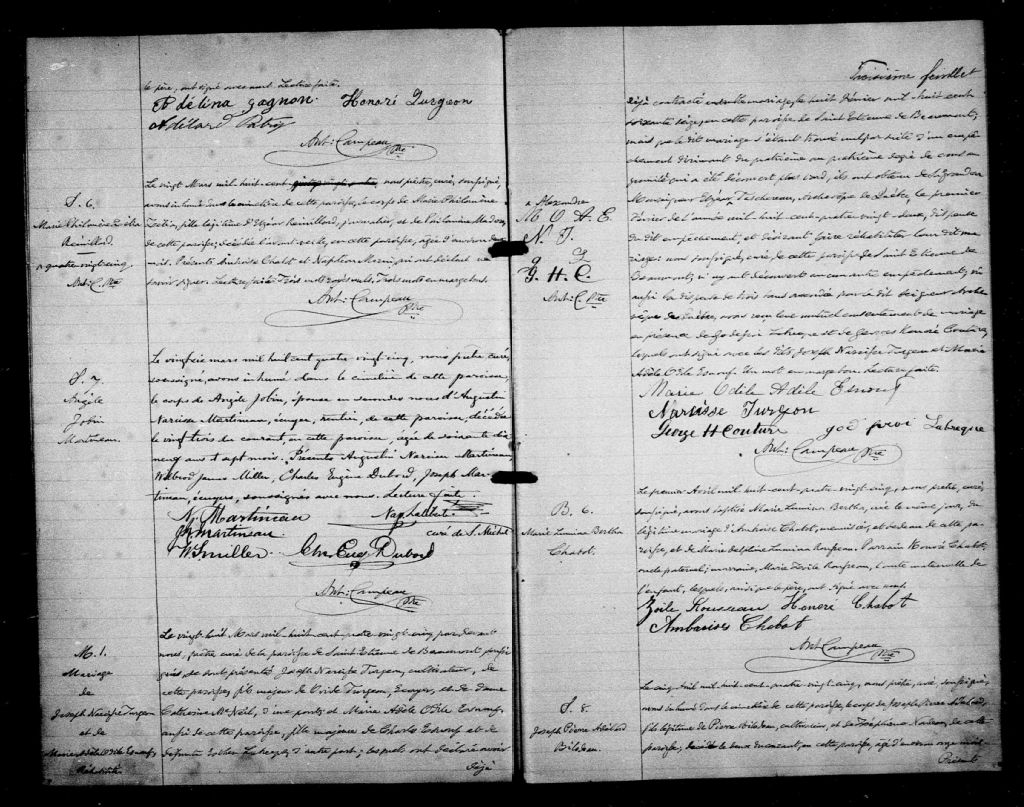 le père, ont signé avec nous. Lecture faite.
Adélina Gagnon. Honoré Turgeon
Adélard Patry
Ant: Campeau Ptre
S. 6.
Marie Philomène
Remillard.
a quatre-vingt-cinq
Ant: C. Ptre
Le vingt Mars mil-huit-cent nous prêtre, curé, soussigné,
avons inhumé dans le cimetière de cette paroisse, le corps de Marie Philomène
fille légitime d'Elzéar Remillard, journalier, et de Philomène
de cette paroisse; décédée l'avant-veille, en cette paroisse, âgée d'environ
mois. Présents Ambroise Chabot et Napoléon qui ont déclaré ne
savoir signer. Lecture faite. Trois mots rayés nuls. Trois mots en marge bons.
Ant: Campeau Ptre
S. 7.
Angèle
Jobin
Martineau.
Le vingt six mars mil huit cent quatre-vingt-cinq, nous prêtre, curé,
soussigné, avons inhumé dans le cimetière de cette paroisse,
le corps de Angèle Jobin, épouse en secondes noces d'Augustin
Narcisse Martineau, écuyer, rentier, de cette paroisse, décédée
le vingt trois du courant, en cette paroisse, âgée de soixante dix
neuf ans et sept mois. Présents Augustin Narcisse Martineau
James Miller, Charles Eugène Dubord, Joseph Mar-
tineau, écuyers, soussignés avec nous. Lecture faite.
N. Martineau Nap. Laliberté
Martineau. curé de S. Michel
W. J. Miller. Chs Eug Dubord
Ant: Campeau Ptre
M. 1.
Mariage
de
Joseph Narcisse Turgeon
et de
Marie Adèle Odile Esnouf,
Réhabilité
Le vingt-huit Mars mil-huit-cent-quatre-vingt-cinq, par devant
nous, prêtre curé de la paroisse de Saint Etienne de Beaumont soussi-
gné, se sont présentés Joseph Narcisse Turgeon, cultivateur, de
cette paroisse, fils majeur de Turgeon, Ecuyer, et de dame
Catherine McNeil, d'une part; et Marie Adèle Odile Esnouf,
aussi de cette paroisse, fille majeure de Charles Esnouf et de
défunte Labrecque, d'autre part; lesquels ont déclaré avoir
déjà
Troisième feuillet
déjà contracté ensemble mariage, le huit Février mil huit cent
soixante seize, en cette paroisse de Saint Etienne de Beaumont;
mais que le dit mariage s'étant trouvé nul par suite d'un empê-
chement dirimant du quatrième au quatrième degré de consan-
guinité qui a été découvert plus tard, ils ont obtenu de Sa Grandeur
Monseigneur Elzéar Taschereau, Archevêque de Québec, le premier
Février de l'année mil huit cent-quatre-vingt-deux, dispense
du dit empêchement, et désirant faire réhabiliter leur dit ma-
riage; nous soussigné, curé, de cette paroisse de Saint Etienne de
Beaumont, n'ayant découvert aucun autre empêchement, vu
aussi la dispense de trois bans accordée par le dit Seigneur Arche-
vêque de Québec, avons reçu leur mutuel consentement de mariage
en présence de Godefroi Labrecque, et de Georges Honoré Couture,
lesquels ont signé avec les dits Joseph Narcisse Turgeon et Marie
Adèle Odile Esnouf. Un mot en marge bon. Lecture faite.
a Alexandre
M O A E.
N. T.
g g
G. H. C.
Ant: C. Ptre
Marie Odile Adèle Esnouf
Narcisse Turgeon
George H Couture god froi Labreque
Ant: Campeau Ptre
B. 6.
Marie Lumina Bertha
Chabot.
Le premier Avril mil-huit-cent-quatre-vingt-cinq, nous prêtre, curé,
soussigné, avons baptisé Marie Lumina Bertha, née le même jour, du
légitime mariage d'Ambroise Chabot, menuisier, et bedeau de cette pa-
roisse, et de Marie Delphine Lumina Rousseau. Parrain Honoré Chabot,
oncle paternel; marraine, Marie Zoïle Rousseau, tante maternelle de
l'enfant, lesquels, ainsi que le père, ont signé avec nous.
Zoïle Rousseau Honoré Chabot
Ambroises Chabot
Ant: Campeau Ptre
S. 8.
Joseph Pierre
Bilodeau.
Le cinq Avril mil-huit-cent-quatre-vingt-cinq, nous prêtre, curé, soussigné,
avons inhumé dans le cimetière de cette paroisse, le corps de Joseph Pierre
fils légitime de Pierre Bilodeau, cultivateur, et de Nadeau, de cette
paroisse; décédé le deux du courant, en cette paroisse, âgé d'environ onze mois.
Présents